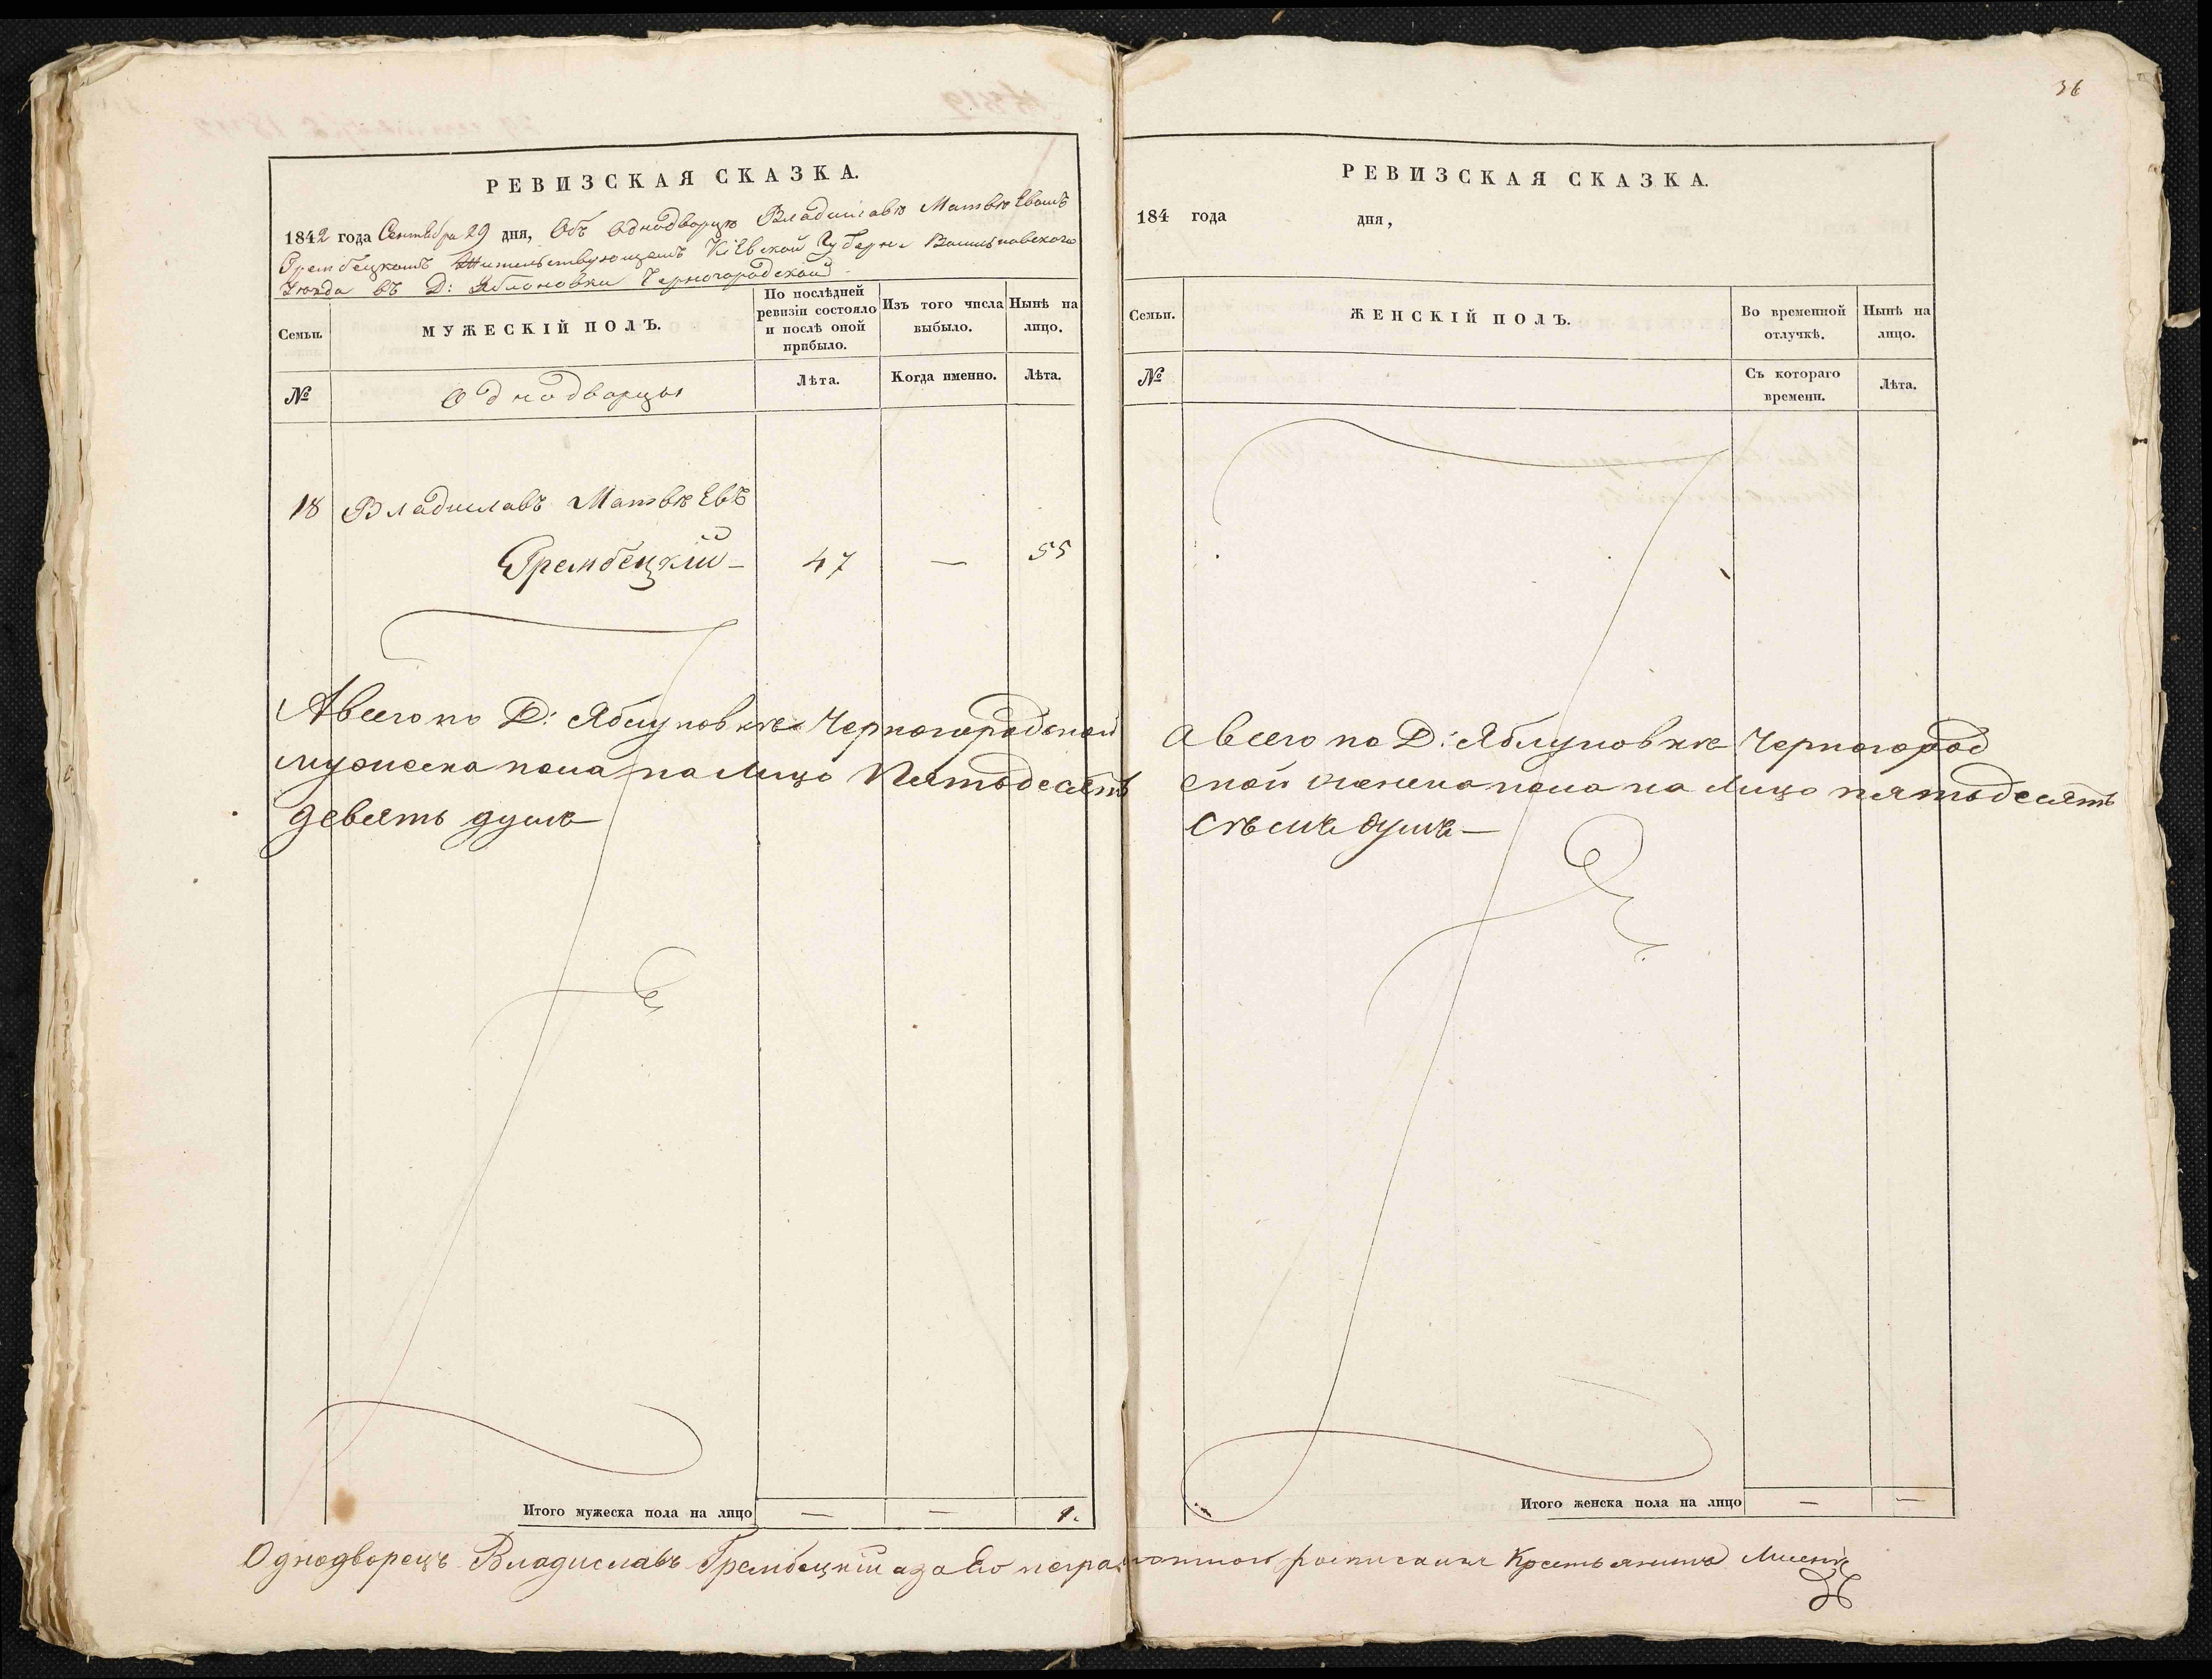 РЕВИЗСКАЯ СКАЗКА.
1842 года Сентября 29 дня, Объ Однодворцѣ Владиславѣ Матвѣевомъ
Грембецкомъ Жительствующемъ Кіевской Губерніи Васильковскаго
Уѣзда въ Д: Яблоновки Черногородской
Семьи.
МУЖЕСКІЙ ПОЛЪ.
По послѣдней
ревизіи состояло
и послѣ оной
прибыло.
Изъ того числа
выбыло.
Нынѣ на
лицо.
№
Однодворцы
Лѣта.
Когда именно.
Лѣта.
18 Владиславъ Матвѣевъ
Грембецкій – 47 — 55
А всего по Д: Яблуновкѣ Черногородской
мужеска пола на лицо Пятьдесятъ
девять душъ
Итого мужеска пола на лицо — — 1.
36
РЕВИЗСКАЯ СКАЗКА.
184 года дня,
Семьи.
ЖЕНСКІЙ ПОЛЪ.
Во временной
отлучкѣ.
Нынѣ на
лицо.
№
Съ котораго
времени.
Лѣта.
А всего по Д: Яблуновкѣ Черногород
ской женска пола на лицо пятьдесятъ
сѣмъ душъ —
Итого женска пола на лицо — —
Однодворецъ Владиславъ Грембецкій а за Его неграмотного Крестьянинъ